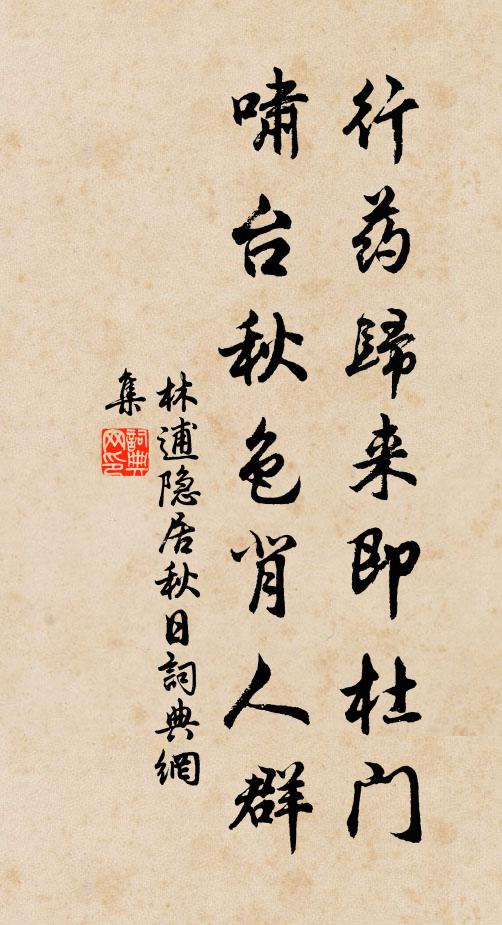 行药歸来即杜门
啸台秋色背人群
林逋隐居秋日詞典網
集
詞典网印